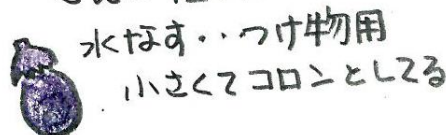 水なす‥つけ物用
小さくてコロンとしてる